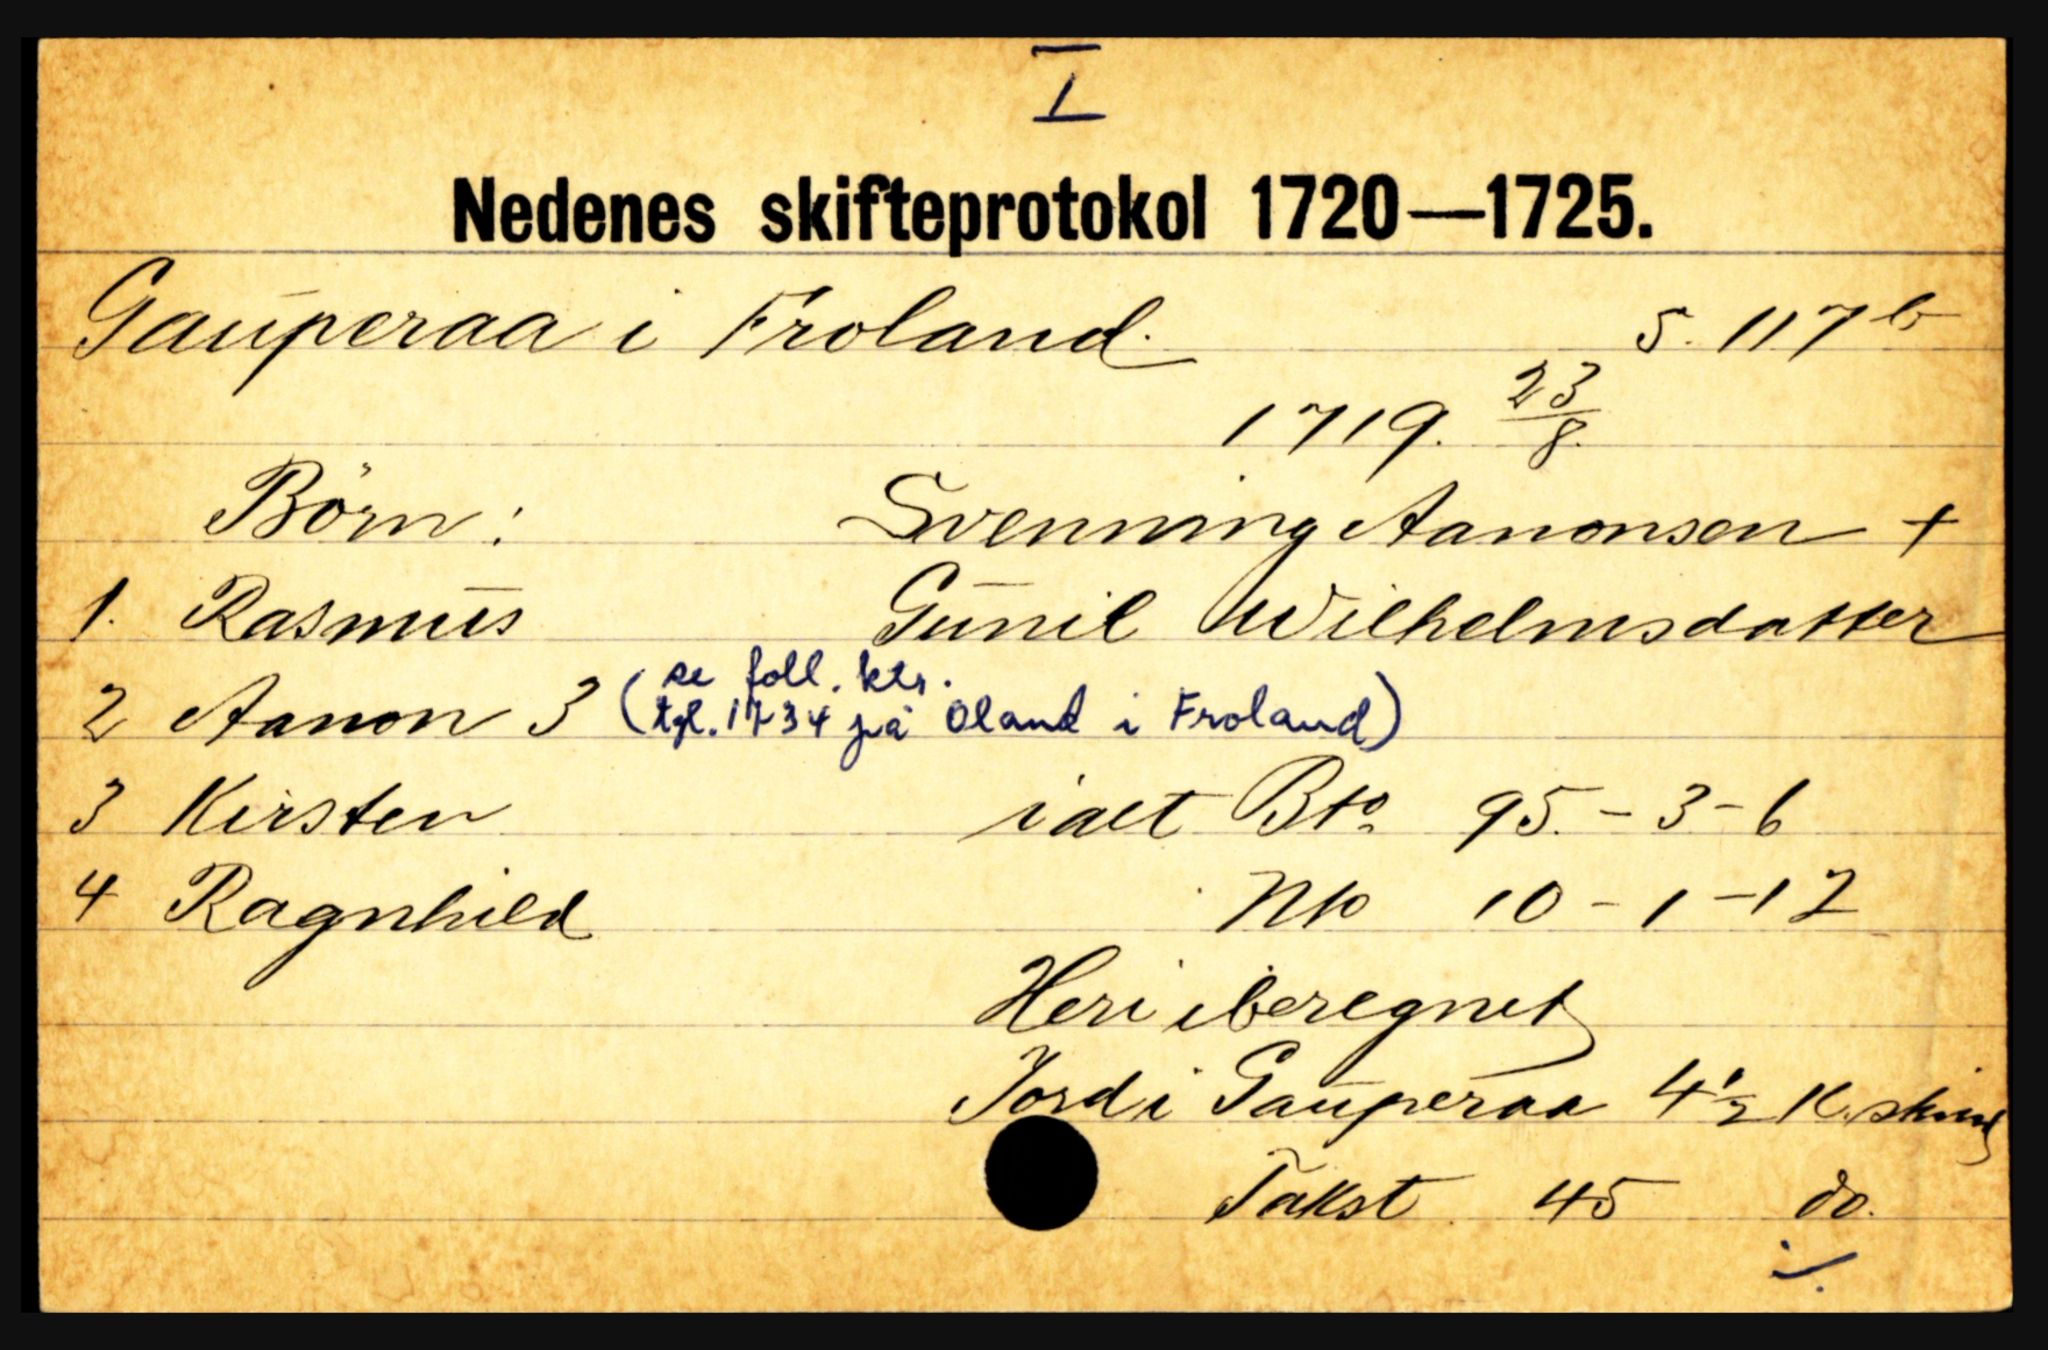 I
Nedenes skifteprotokol 1720—1725.
Gauperaa i Froland. S. 117 b
1719. 23/8.
Börn: Svenning Aanonsen +
1. Rasmus Gunil Wilhelmsdatter
2 Aanon 3 (se foll. ktr.
tgl. 1734 på Oland i Froland)
3 Kirsten ialt Bto. 95.-3-6
4 Ragnhild Nto 10-1-12
Heri iberegnet
Jord i Gauperaa 4 1/2 K. skind
Takst 45 do.